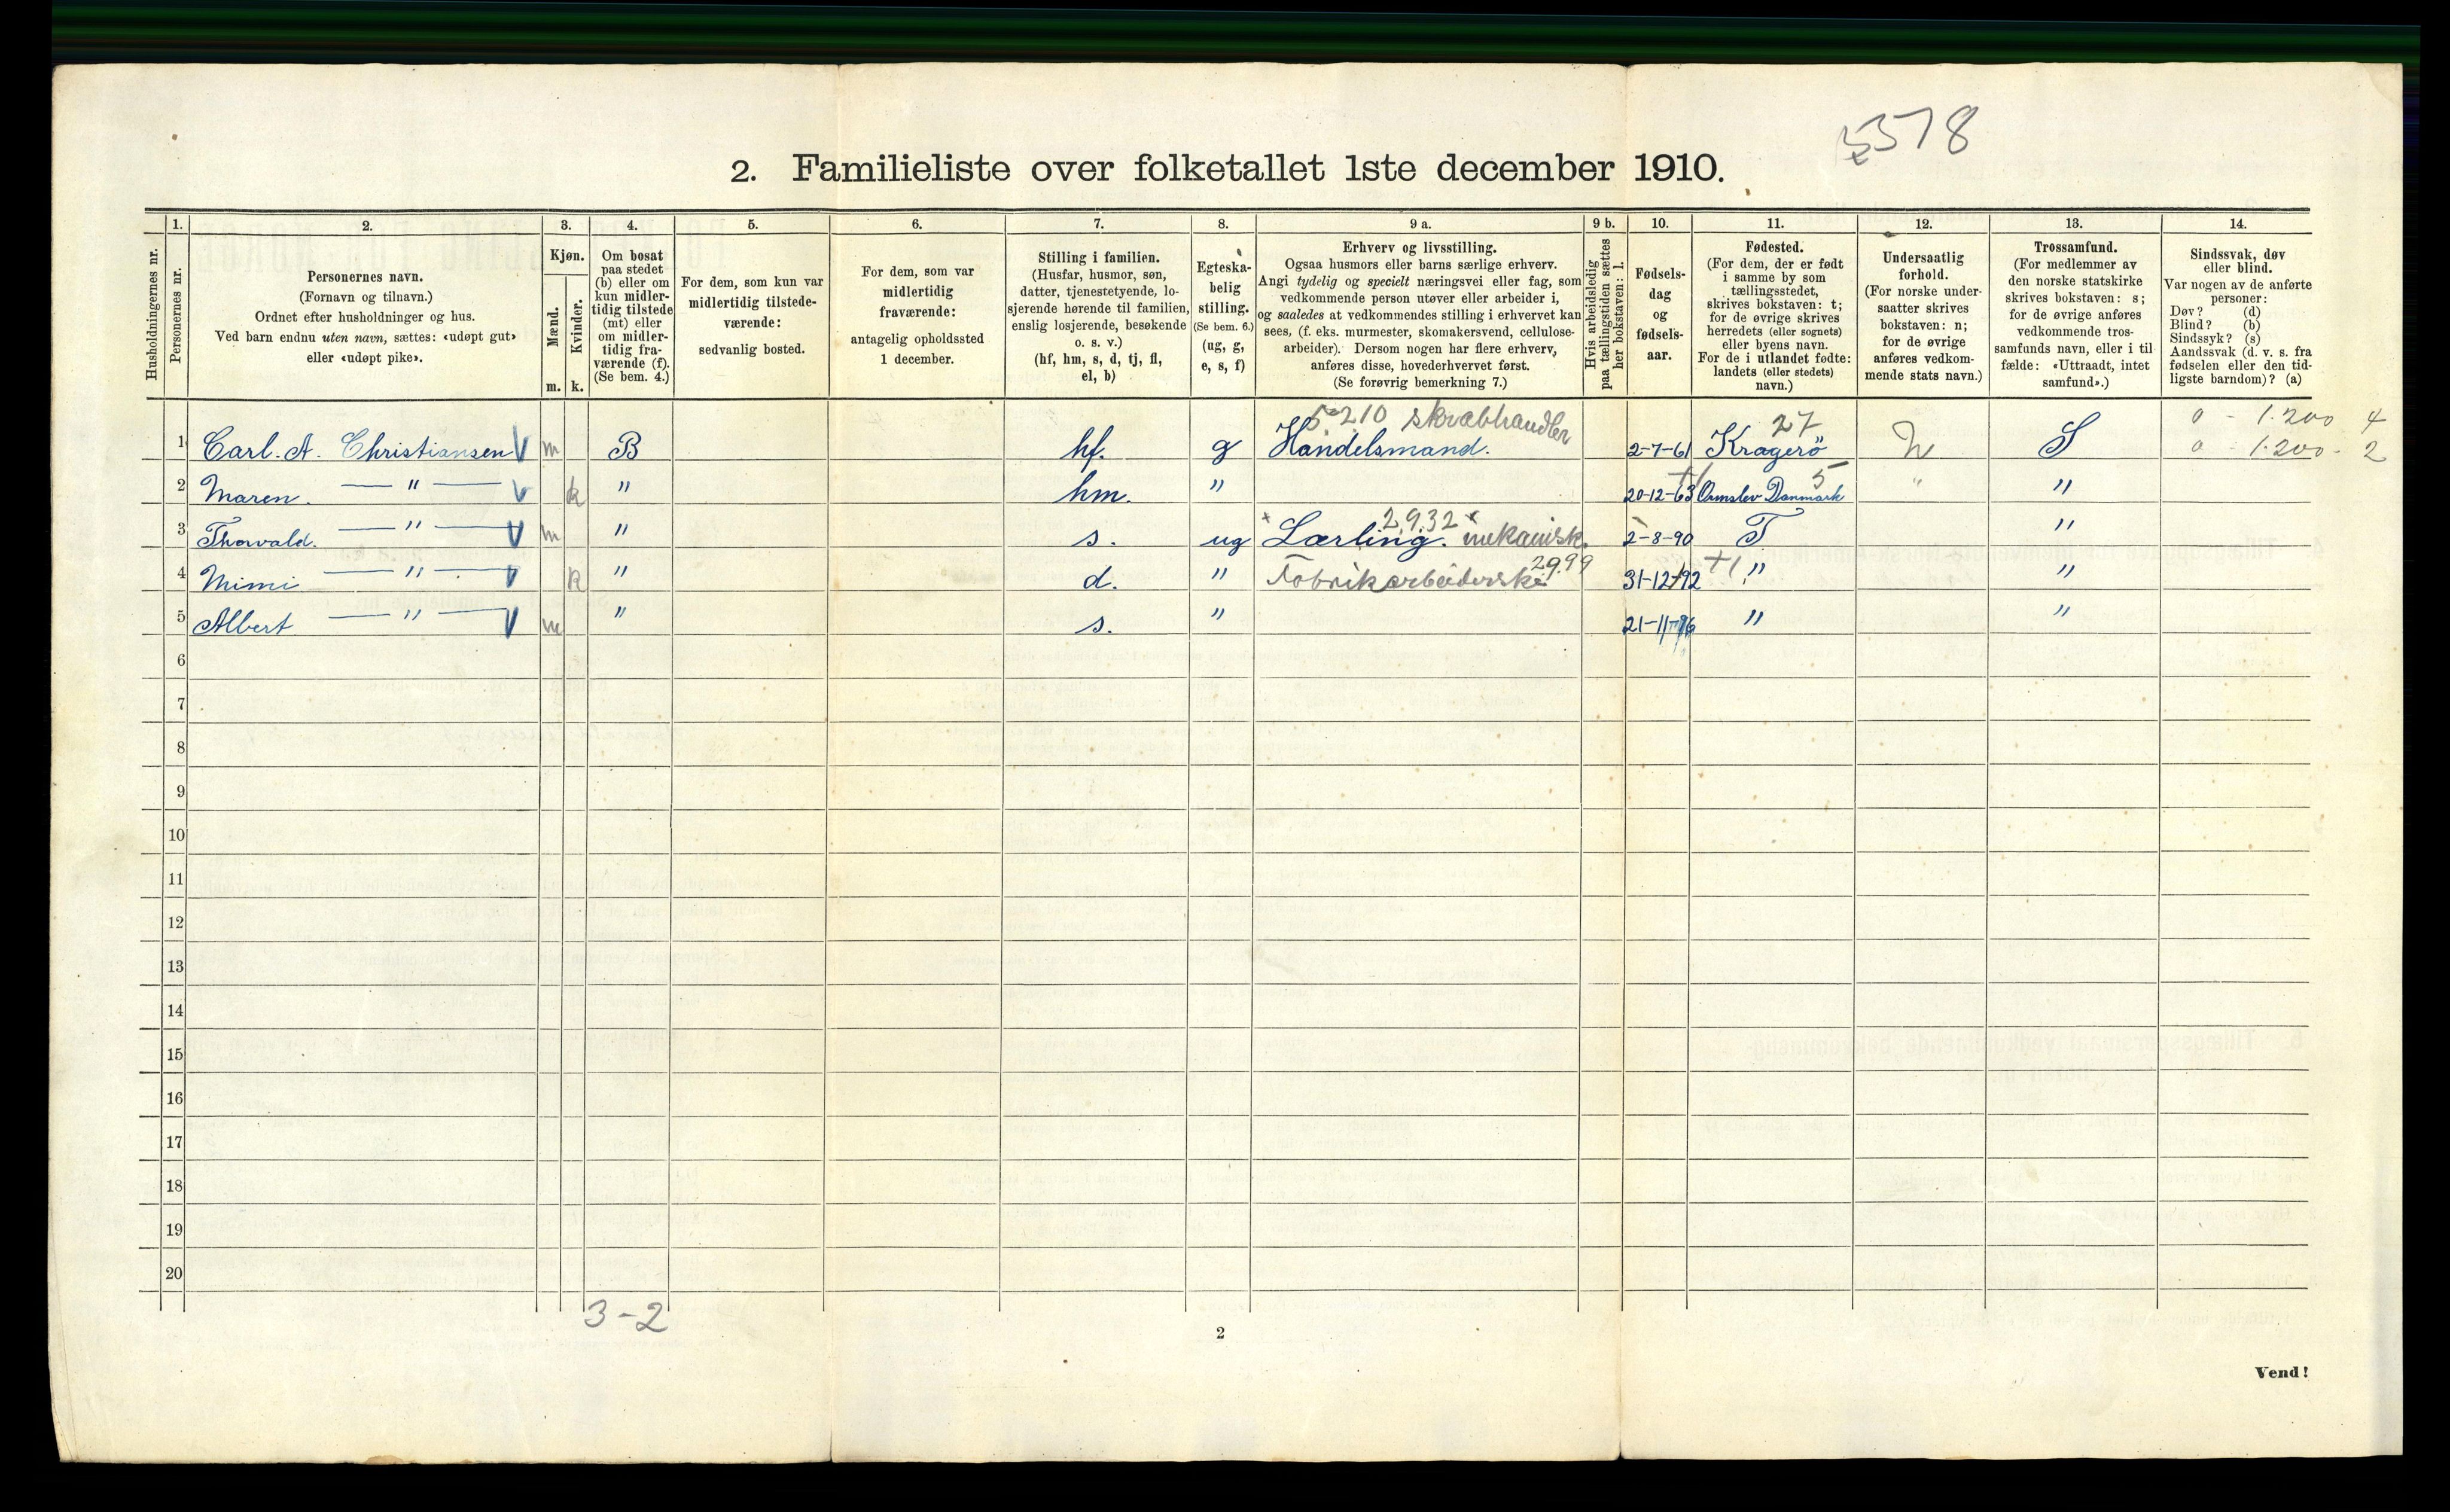 5378
2. Familieliste over folketallet 1ste december 1910.
Husholdningernes nr.
1. Personernes nr.
2. Personernes navn. (Fornavn og tilnavn.) Ordnet efter husholdninger og hus. Ved barn endnu uten navn, sættes: «udøpt gut» eller «udøpt pike».
3. Kjøn. Mænd. m. Kvinder. k.
4. Om bosat paa stedet (b) eller om kun midlertidig tilstede (mt) eller om midlertidig fraværende (f). (Se bem. 4.)
5. For dem, som kun var midlertidig tilstedeværende: sedvanlig bosted.
6. For dem, som var midlertidig fraværende: antagelig opholdssted 1 december.
7. Stilling i familien. (Husfar, husmor, søn, datter, tjenestetyende, losjerende hørende til familien, enslig losjerende, besøkende o. s. v.) (hf, hm, s, d, tj, fl, el, b)
8. Egteskabelig stilling. (Se bem. 6.) (ug, g, e, s, f)
9 a. Erhverv og livsstilling. Ogsaa husmors eller barns særlige erhverv. Angi tydelig og specielt næringsvei eller fag, som vedkommende person utøver eller arbeider i, og saaledes at vedkommendes stilling i erhvervet kan sees, (f. eks. murmester, skomakersvend, cellulosearbeider). Dersom nogen har flere erhverv, anføres disse, hovederhvervet først. (Se forøvrig bemerkning 7.)
9 b. Hvis arbeidsledig paa tællingstiden sættes her bokstaven: l.
10. Fødselsdag og fødselsaar.
11. Fødested. (For dem, der er født i samme by som tællingsstedet, skrives bokstaven: t; for de øvrige skrives herredets (eller sognets) eller byens navn. For de i utlandet fødte: landets (eller stedets) navn.)
12. Undersaatlig forhold. (For norske undersaatter skrives bokstaven: n; for de øvrige anføres vedkommende stats navn.)
13. Trossamfund. (For medlemmer av den norske statskirke skrives bokstaven: s; for de øvrige anføres vedkommende trossamfunds navn, eller i tilfælde: «Uttraadt, intet samfund».)
14. Sindssvak, døv eller blind. Var nogen av de anførte personer: Døv? (d) Blind? (b) Sindssyk? (s) Aandssvak (d. v. s. fra fødselen eller den tidligste barndom)? (a)
5.210 skrabhandler 27 0 - 1.200 4
1 Carl. A. Christiansen V m B hf. g Handelsmand. 2-7-61 Kragerö N S 0 - 1.200 - 2
2 Maren. — " — V k " hm. " 20-12-63 Ormslev Danmark 5 " "
3 Thorvald. — " — V m " s. ug Lærling. mekanisk. 2932 2-8-90 T "
4 Mimi — " — V k " d. " Fabrikarbeiderske 2999 31-12-92 " "
5 Albert — " — V m " s. " 21-11-96 " "
6
7
8
9
10
11
12
13
14
15
16
17
18
19
20
3-2
2
Vend!